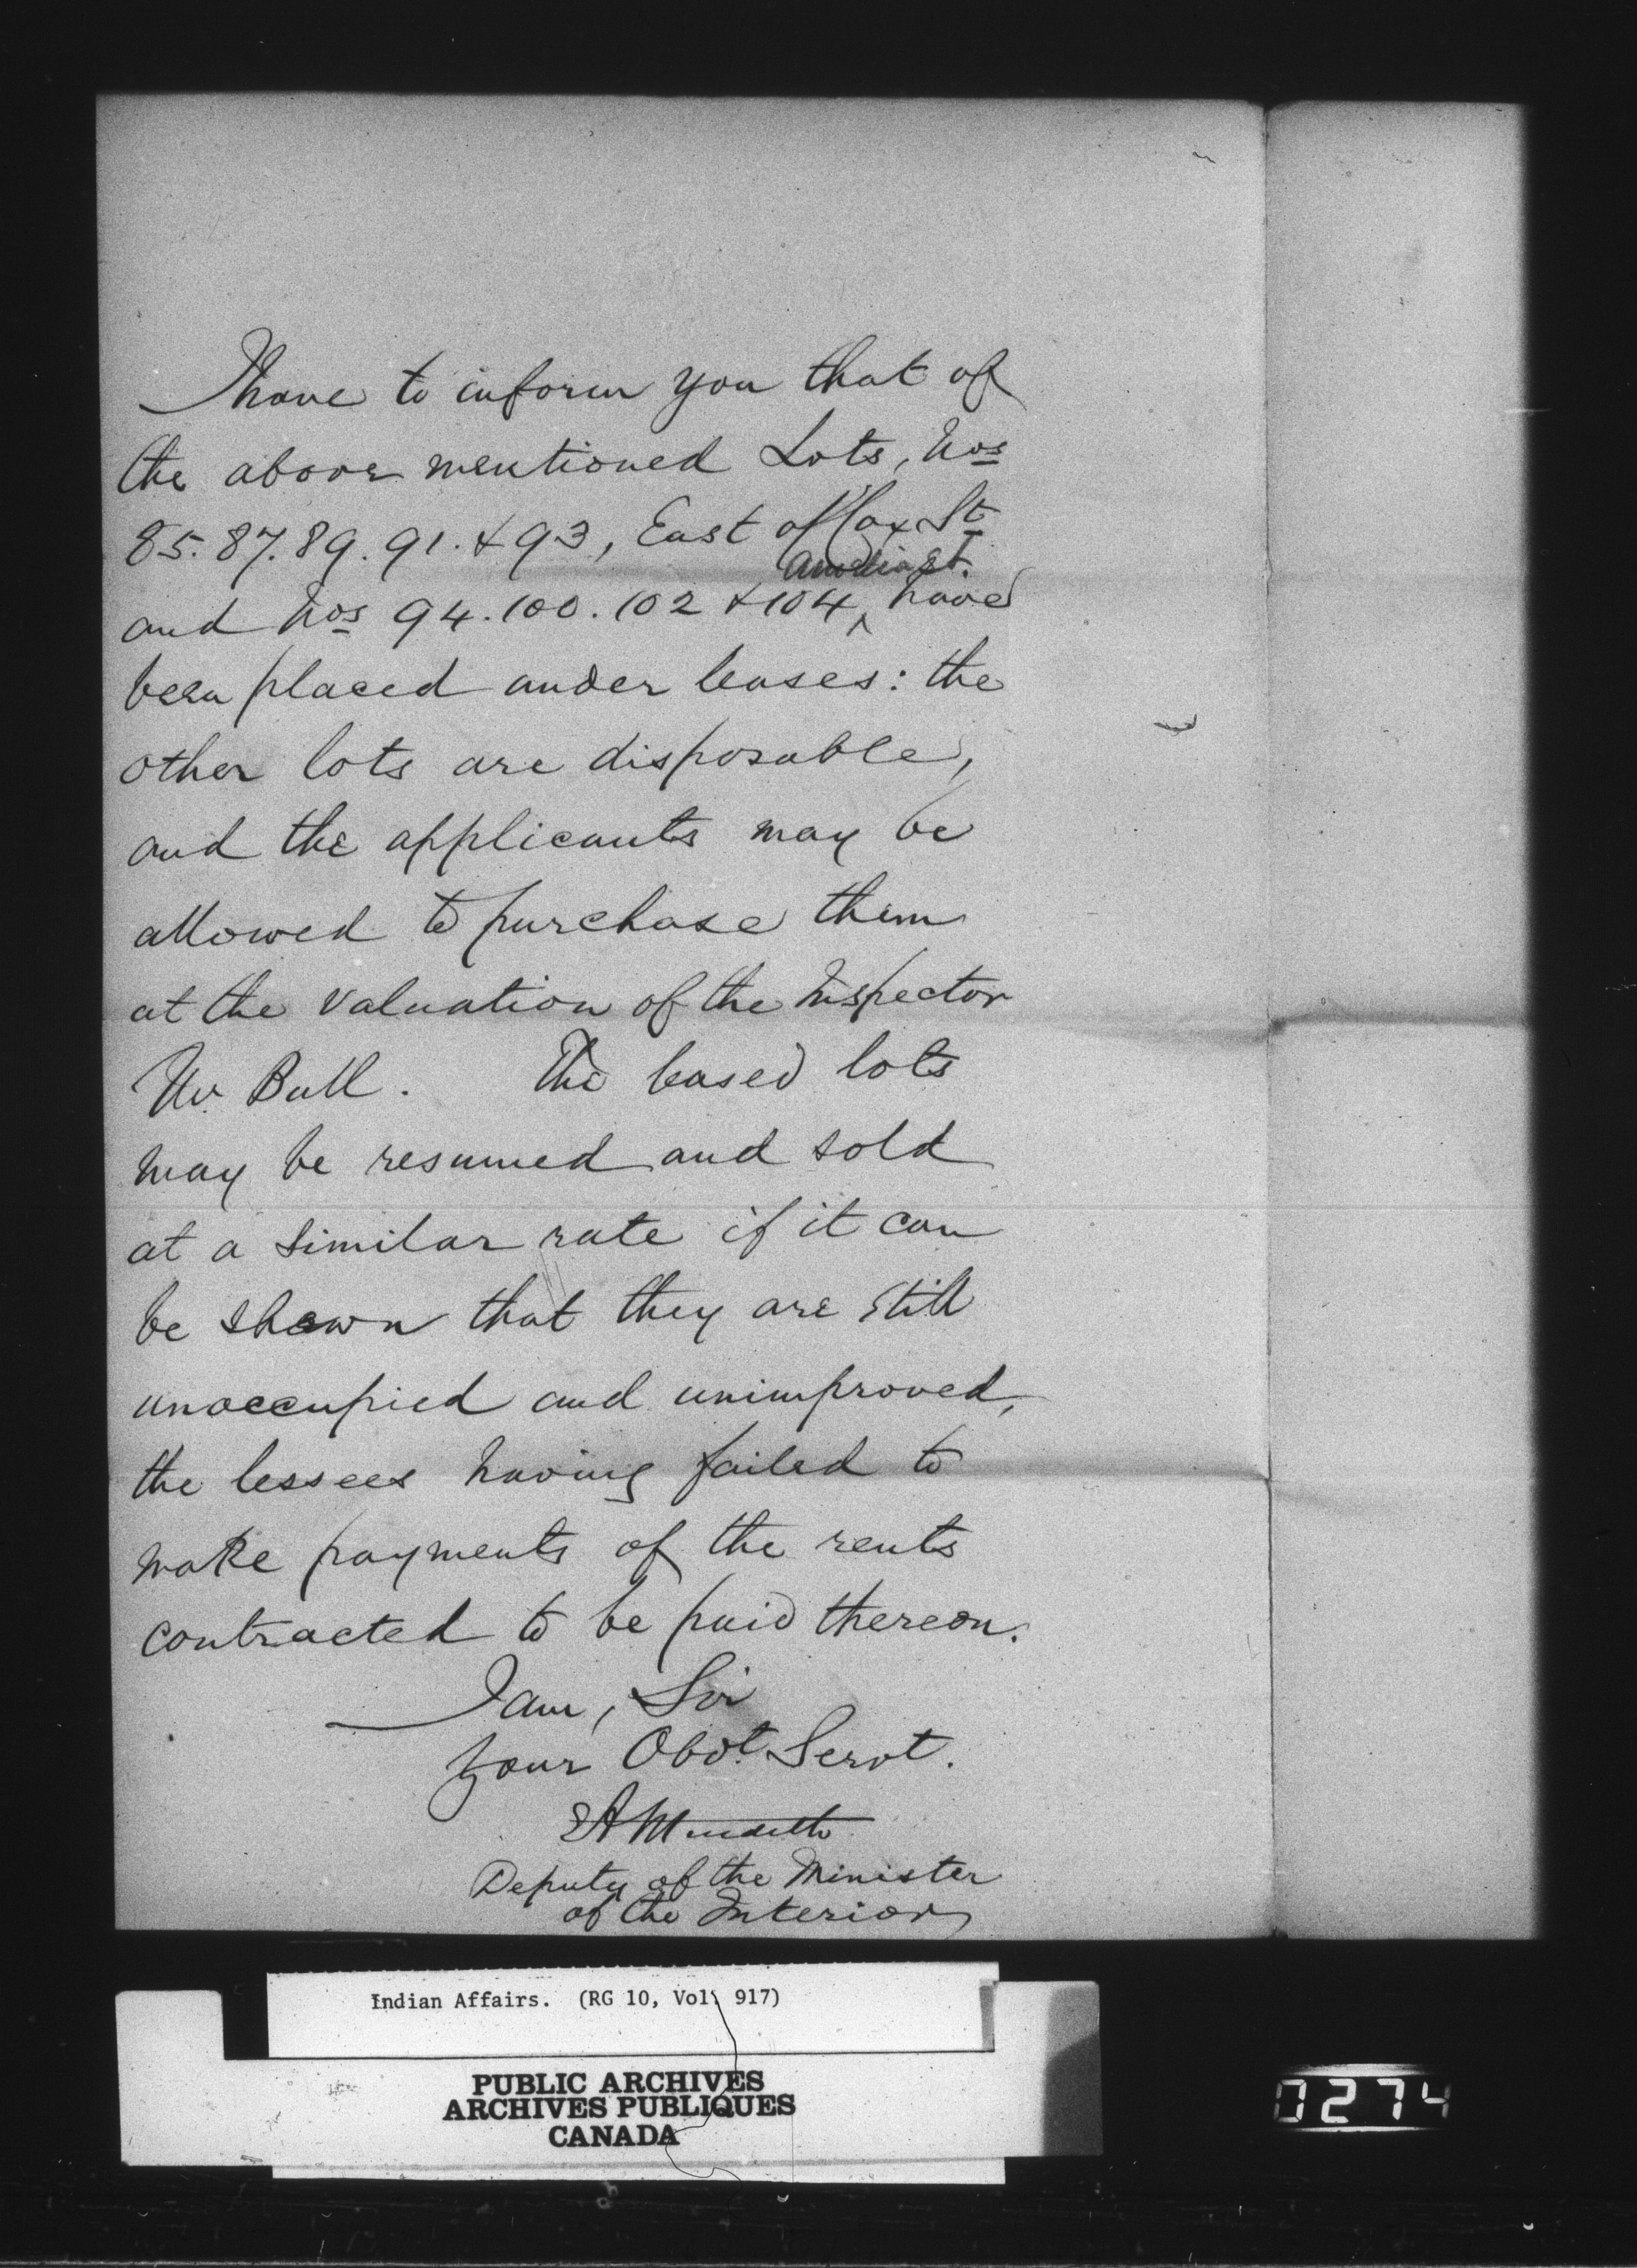 I have to inform you that of
the above mentioned Lots, Nos
85. 87. 89. 91. & 93, East of Cox St
Amelia St.
and Nos 94. 100. 102 & 104, have
been placed under leases: the
other lots are disposable,
and the applicants may be
allowed to purchase them
at the valuation of the Inspector
Mr. Bull. The leased lots
may be resumed and sold
at a similar rate if it can
be shewn that they are still
unoccupied and unimproved,
the lessees having failed to
make payments of the rents
contracted to be paid thereon.
I am, Sir
Your Obdt. Servt.
EA Meredith
Deputy of the Minister
of the Interior
Indian Affairs. (RG 10, Vol. 917)
PUBLIC ARCHIVES
ARCHIVES PUBLIQUES
CANADA
0274